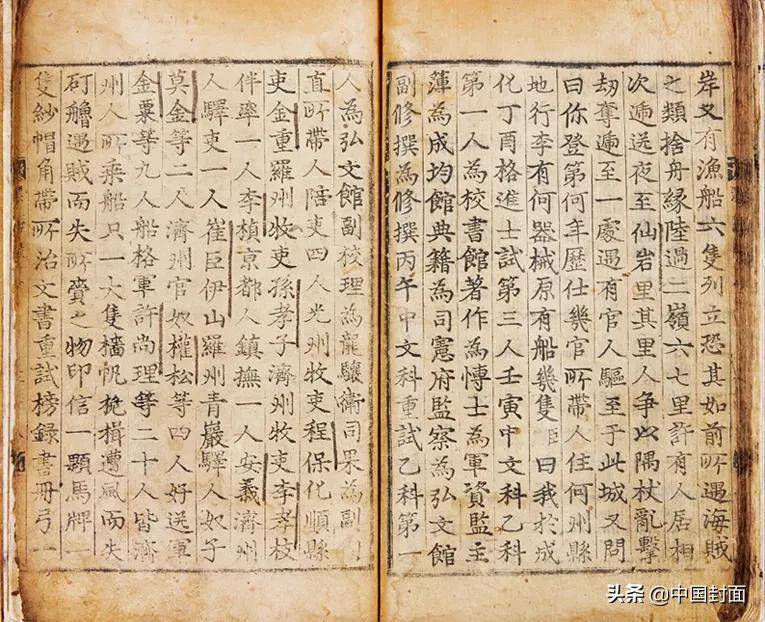 岸又有漁船六隻列立恐其如前所遇海賊
之類捨舟緣陸過二嶺六七里許有人居相
次遞送夜至仙岩里其里人爭以隅杖亂擊
劫奪遞至一處遇有官人驅至于此城又問
曰你登第何年歷仕幾官所帶人住何州縣
地行李有何器械原有船幾隻臣曰我於成
化丁酉格進士試第三人壬寅中文科乙科
第一人為校書館著作為博士為軍資監主
薄為成均館典籍為司憲府監察為弘文館
副修撰為修撰丙午中文科重試乙科第一
人為弘文館副校理為龍驤衛司果為副司
直所帶人陪吏四人光州牧吏程保化順縣
吏金重羅州牧吏孫孝子濟州牧吏李孝枝
伴率一人李楨京都人鎮撫一人安義濟州
人驛吏一人崔臣伊山羅州青巖驛人奴子
莫金等二人濟州官奴權松等四人好送軍
金粟等九人船格軍許尚理等二十人皆濟
州人所乘船只一大隻檣帆桅楫遭風而失
矴艫遇賊而失所賫之物印信一顆馬牌一
隻紗帽角帶所治文書重試榜錄書冊弓一
头条 @中国封面